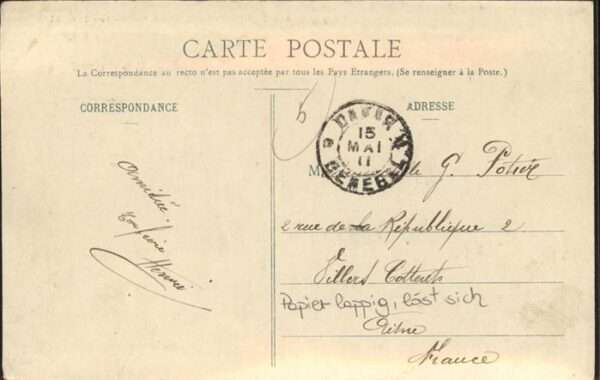 CARTE POSTALE
La Correspondance au recto n'est pas acceptée par tous les Pays Etrangers. (Se renseigner à la Poste.)
CORRESPONDANCE
ADRESSE
15
MAI
11
M
G. Potier
2 rue de la République 2
Villers Cotterets
Papier lappig, löst sich
Aisne
France